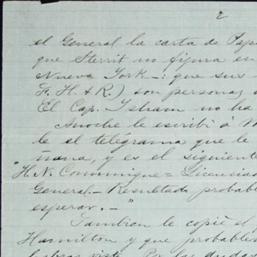 2
el General la carta de
que Sterrit no figura en
Nueva York -: que sus
F. H. & R) son personas
El Cap. Isham no ha
Anoche le escribí á
le el telégrama que le
ñana, y es el siguiente
"H. N. Comunique = Licenciado
General - Resultado probable
esperar. - "
Tambien le copié el
Hamilton y que probable